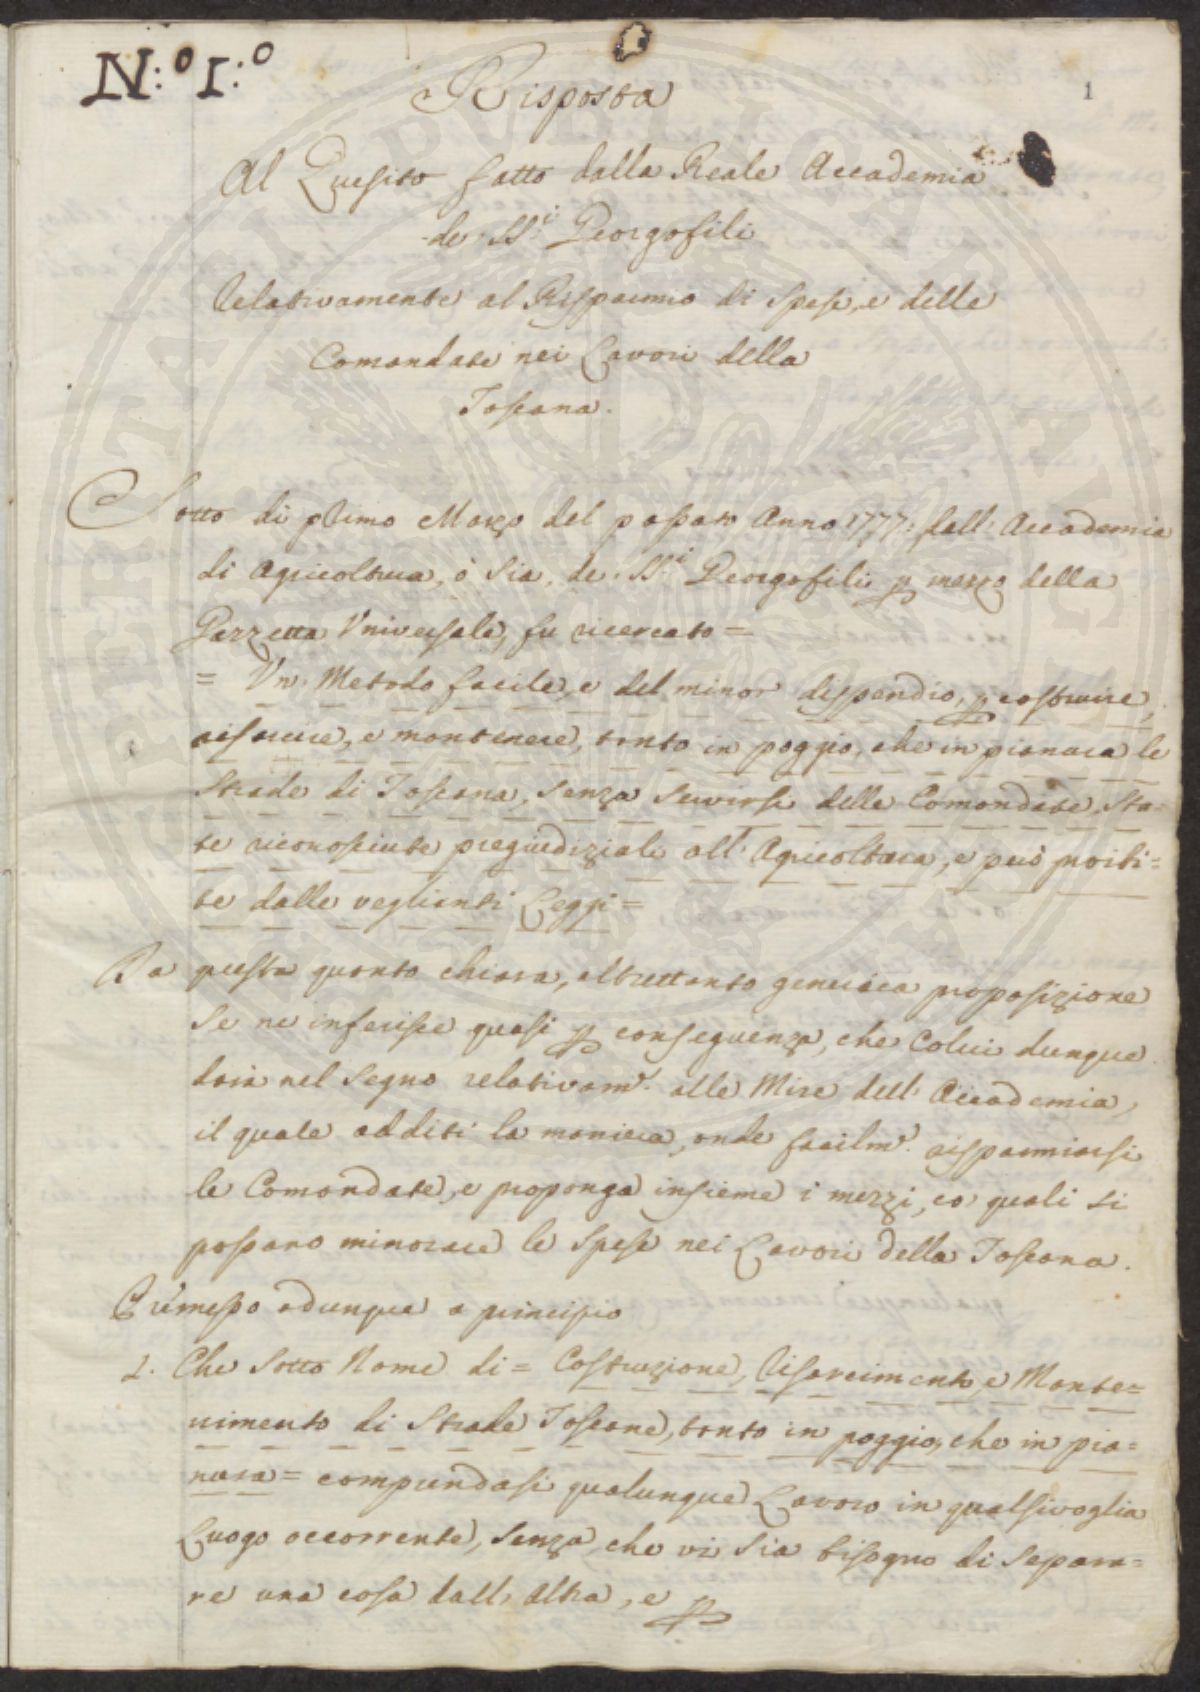 N:º I:º
1
Risposta
Al Quesito fatto dalla Reale Accademia
de' SS:i Georgofili
Relativamente al Risparmio di Spese, e delle
Comandate nei Lavori della
Toscana.
Sotto dì primo Marzo del passato Anno 1777: dall' Accademia
di Agricoltura, ò sia, de' SS:i Georgofili p mezzo della
Gazzetta Universale, fu ricercato =
= Un Metodo facile, e del minor dispendio, p costruire,
risarcire, e mantenere, tanto in poggio, che in pianura le
Strade di Toscana, senza servirsi delle Comandate, sta-
te riconosciute pregiudiziali all' Agricoltura, e però proibi=
te dalle veglianti Leggi =
Da questa quanto chiara, altrettanto generica proposizione
se ne inferisce quasi p conseguenza, che Colui dunque
darà nel segno relativam.e alle Mire dell' Accademia,
il quale additi la maniera, onde facilm.e risparmiarsi
le Comandate, e proponga insieme i mezzi, co' quali si
possano minorare le Spese nei Lavori della Toscana.
Premesso adunque a principio
1. Che sotto Nome di = Costruzione, Risarcimento, e Mante=
nimento di Strade Toscane, tanto in poggio, che in pia=
nura = comprendasi qualunque Lavoro in qualsivoglia
Luogo occorrente, senza, che vi sia bisogno di separa=
re una cosa dall' altra, e p